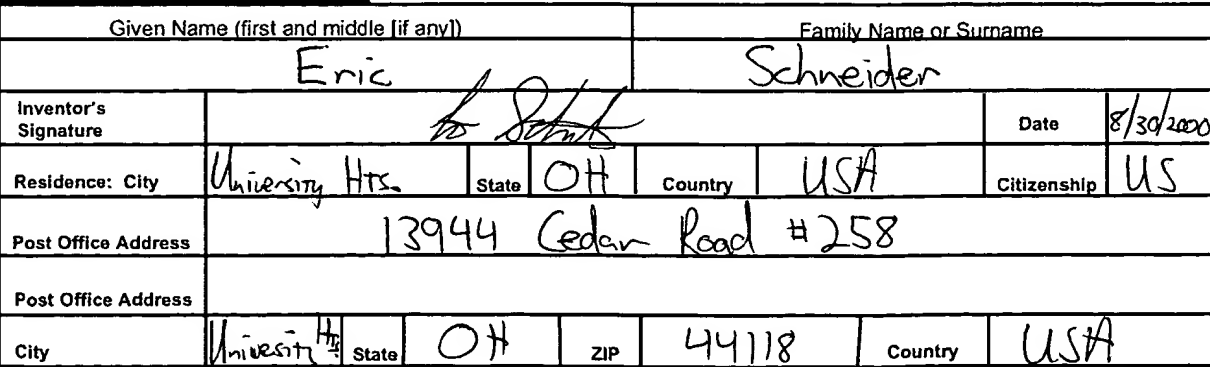 Given Name (first and middle [if any]) Family Name or Surname
Eric Schneider
Inventor's Signature Date 8/30/2000
Residence: City University Hts. State OH Country USA Citizenship US
Post Office Address 13944 Cedar Road #258
Post Office Address
City University Hts. State OH ZIP 44118 Country USA